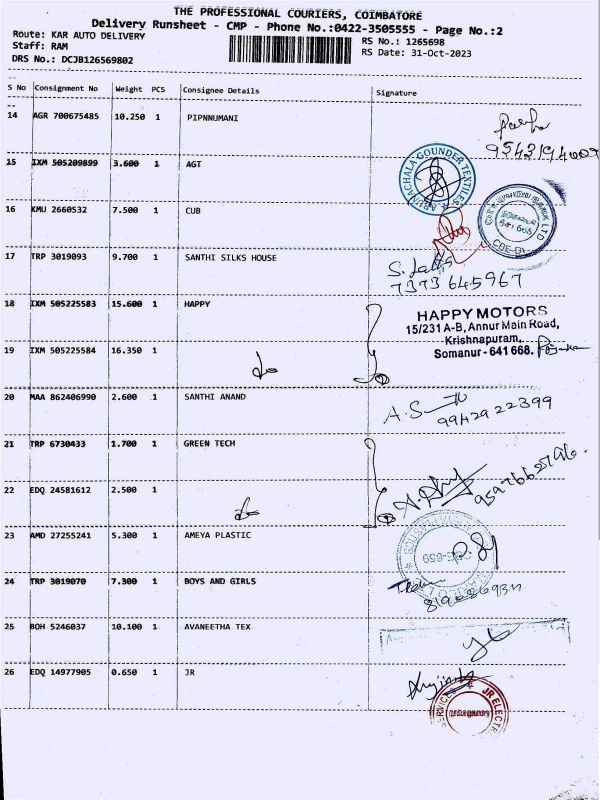 THE PROFESSIONAL COURIERS, COIMBATORE
Delivery Runsheet - CMP - Phone No.:0422-3505555 - Page No.:2
Route: KAR AUTO DELIVERY
RS No.: 1265698
Staff: RAM
RS Date: 31-Oct-2023
DRS No.: DCJB126569802
S No Consignment No Weight PCS Consignee Details Signature
14 AGR 700675485 10.250 1 PIPNNUMANI
15 IXM 505209899 3.600 1 AGT
ARUNACHALA GOUNDER TEXTILES
16 KMU 2660532 7.500 1 CUB
17 TRP 3019093 9.700 1 SANTHI SILKS HOUSE
7373645967
18 IXM 505225583 15.600 1 HAPPY
HAPPY MOTORS
15/231 A-B, Annur Main Road,
Krishnapuram,
Somanur - 641 668.
19 IXM 505225584 16.350 1
do
20 MAA 862406990 2.600 1 SANTHI ANAND
9942922399
21 TRP 6730433 1.700 1 GREEN TECH
9597662796
22 EDQ 24581612 2.500 1
do
23 AMD 27255241 5.300 1 AMEYA PLASTIC
24 TRP 3019070 7.300 1 BOYS AND GIRLS
25 BOH 5246037 10.100 1 AVANEETHA TEX
26 EDQ 14977905 0.650 1 JR